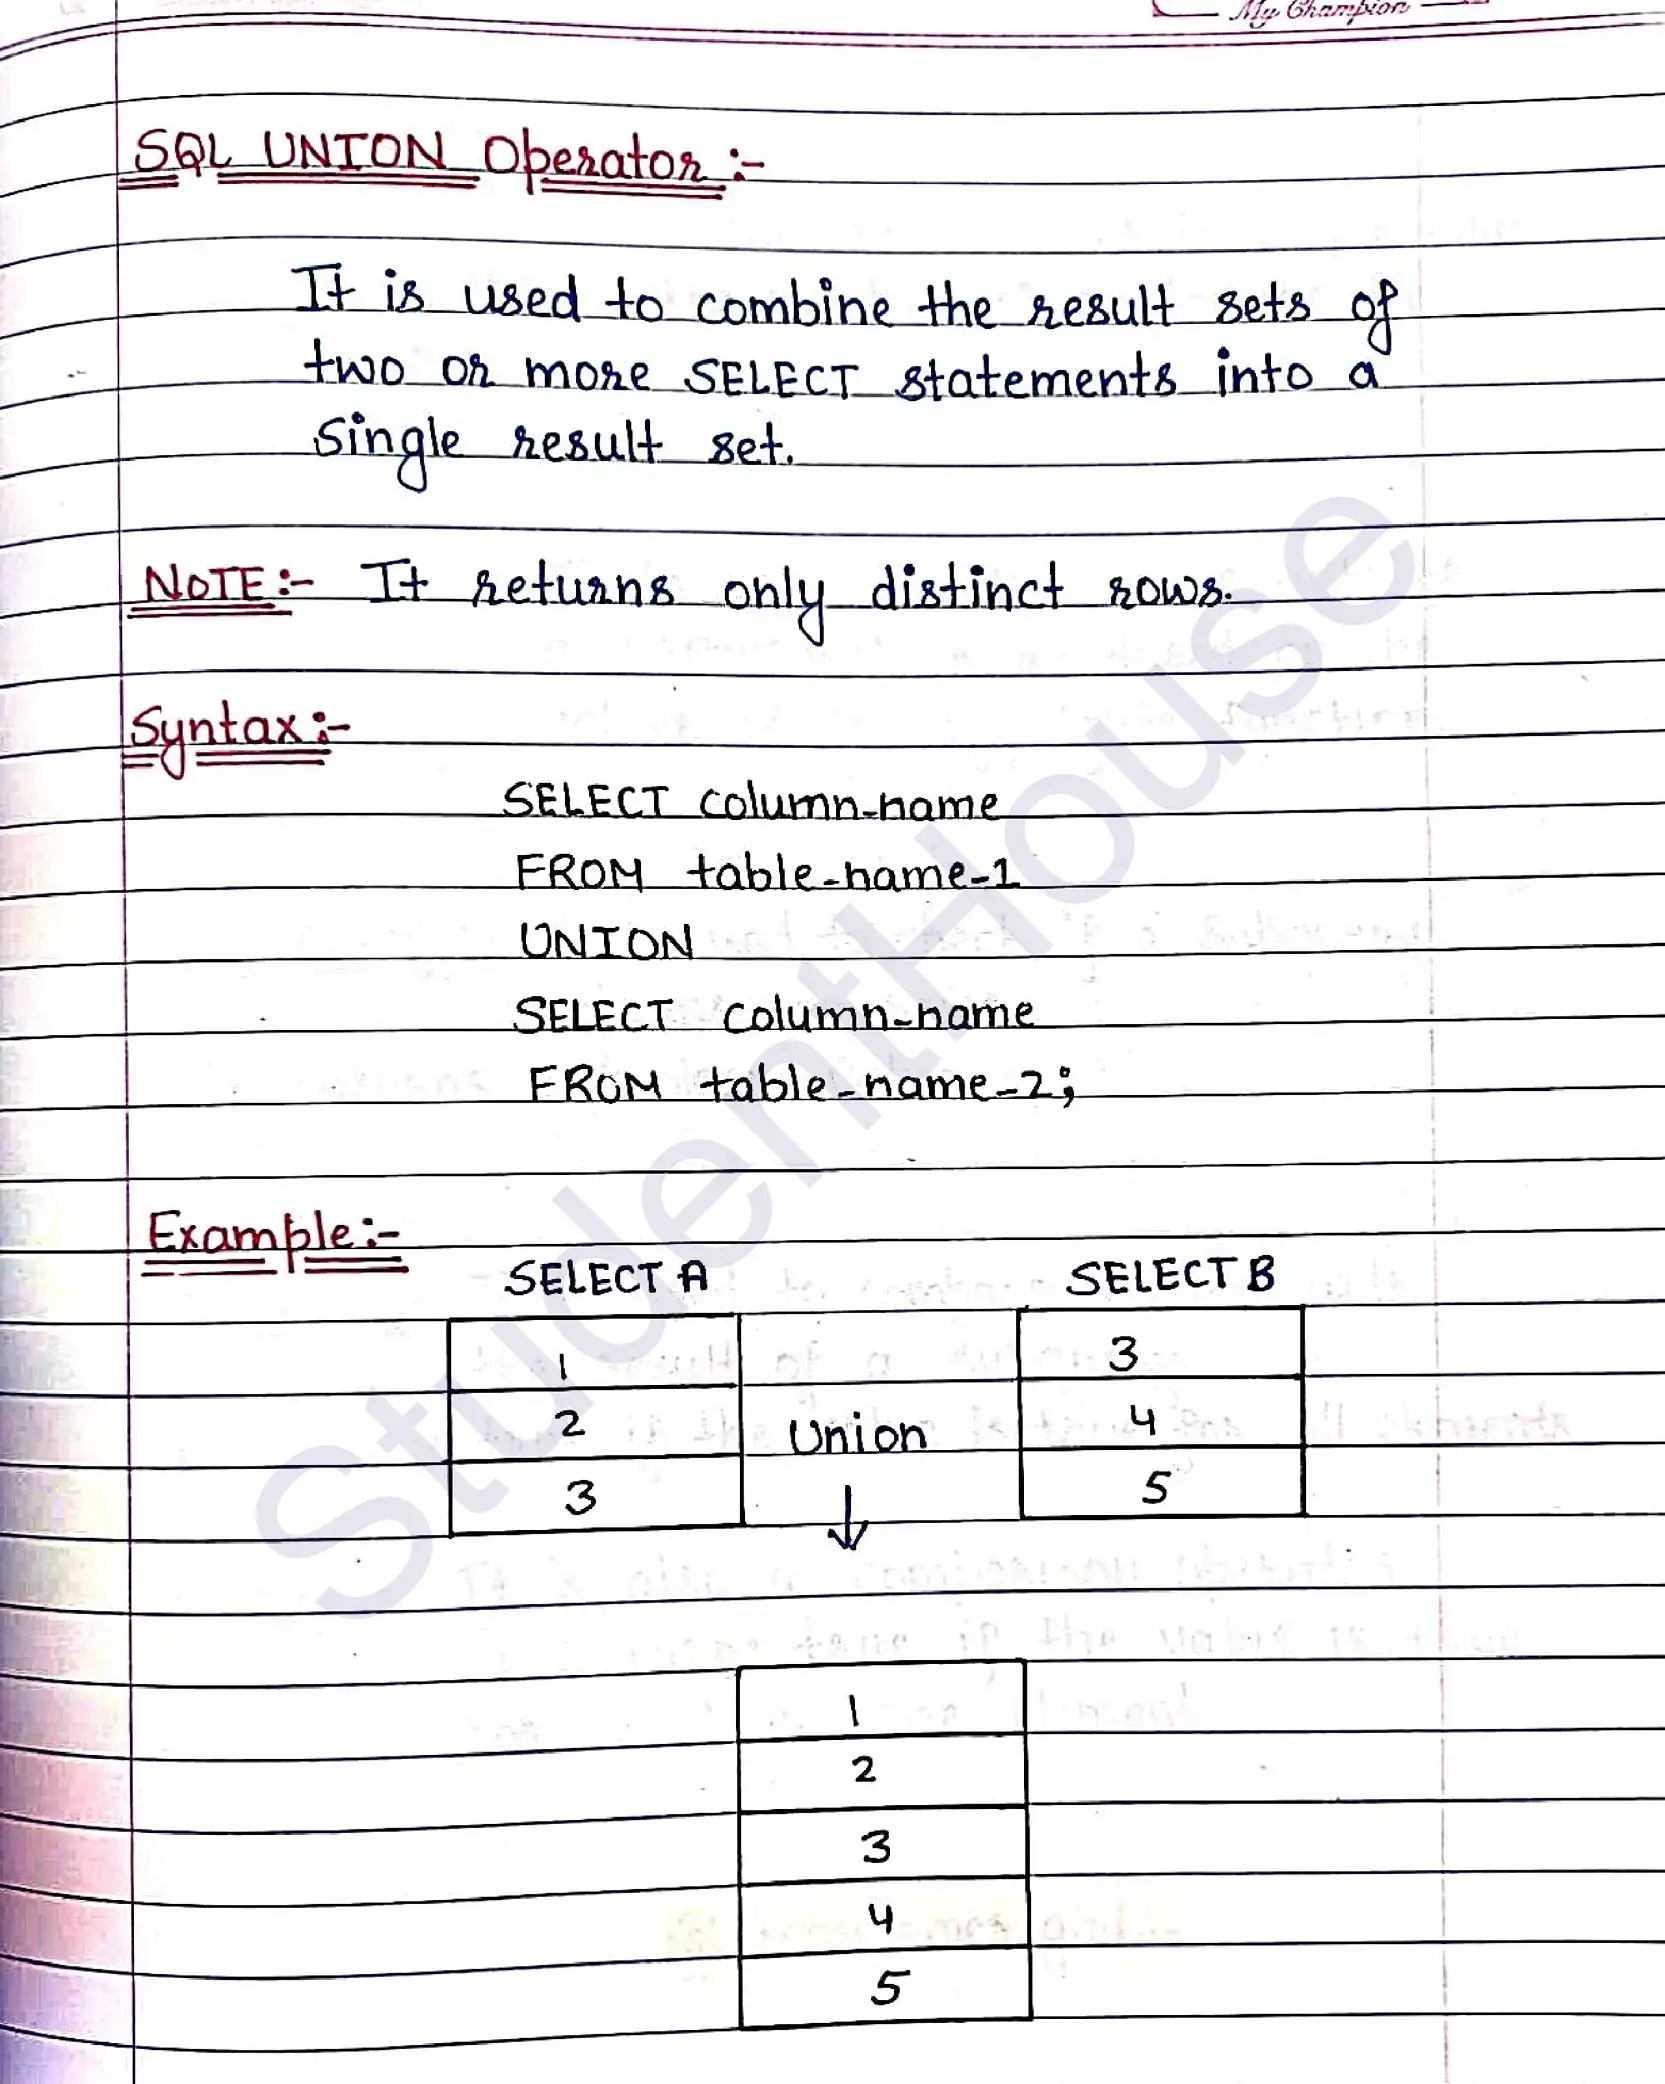 My Champion
SQL UNION Operator :-
It is used to combine the result sets of
two or more SELECT statements into a
single result set.
NOTE :- It returns only distinct rows.
Syntax :-
SELECT column-name
FROM table-name-1
UNION
SELECT column-name
FROM table-name-2;
Example :-
SELECT A SELECT B
1 3
2 Union 4
3 5
1
2
3
4
5
StudentHouse